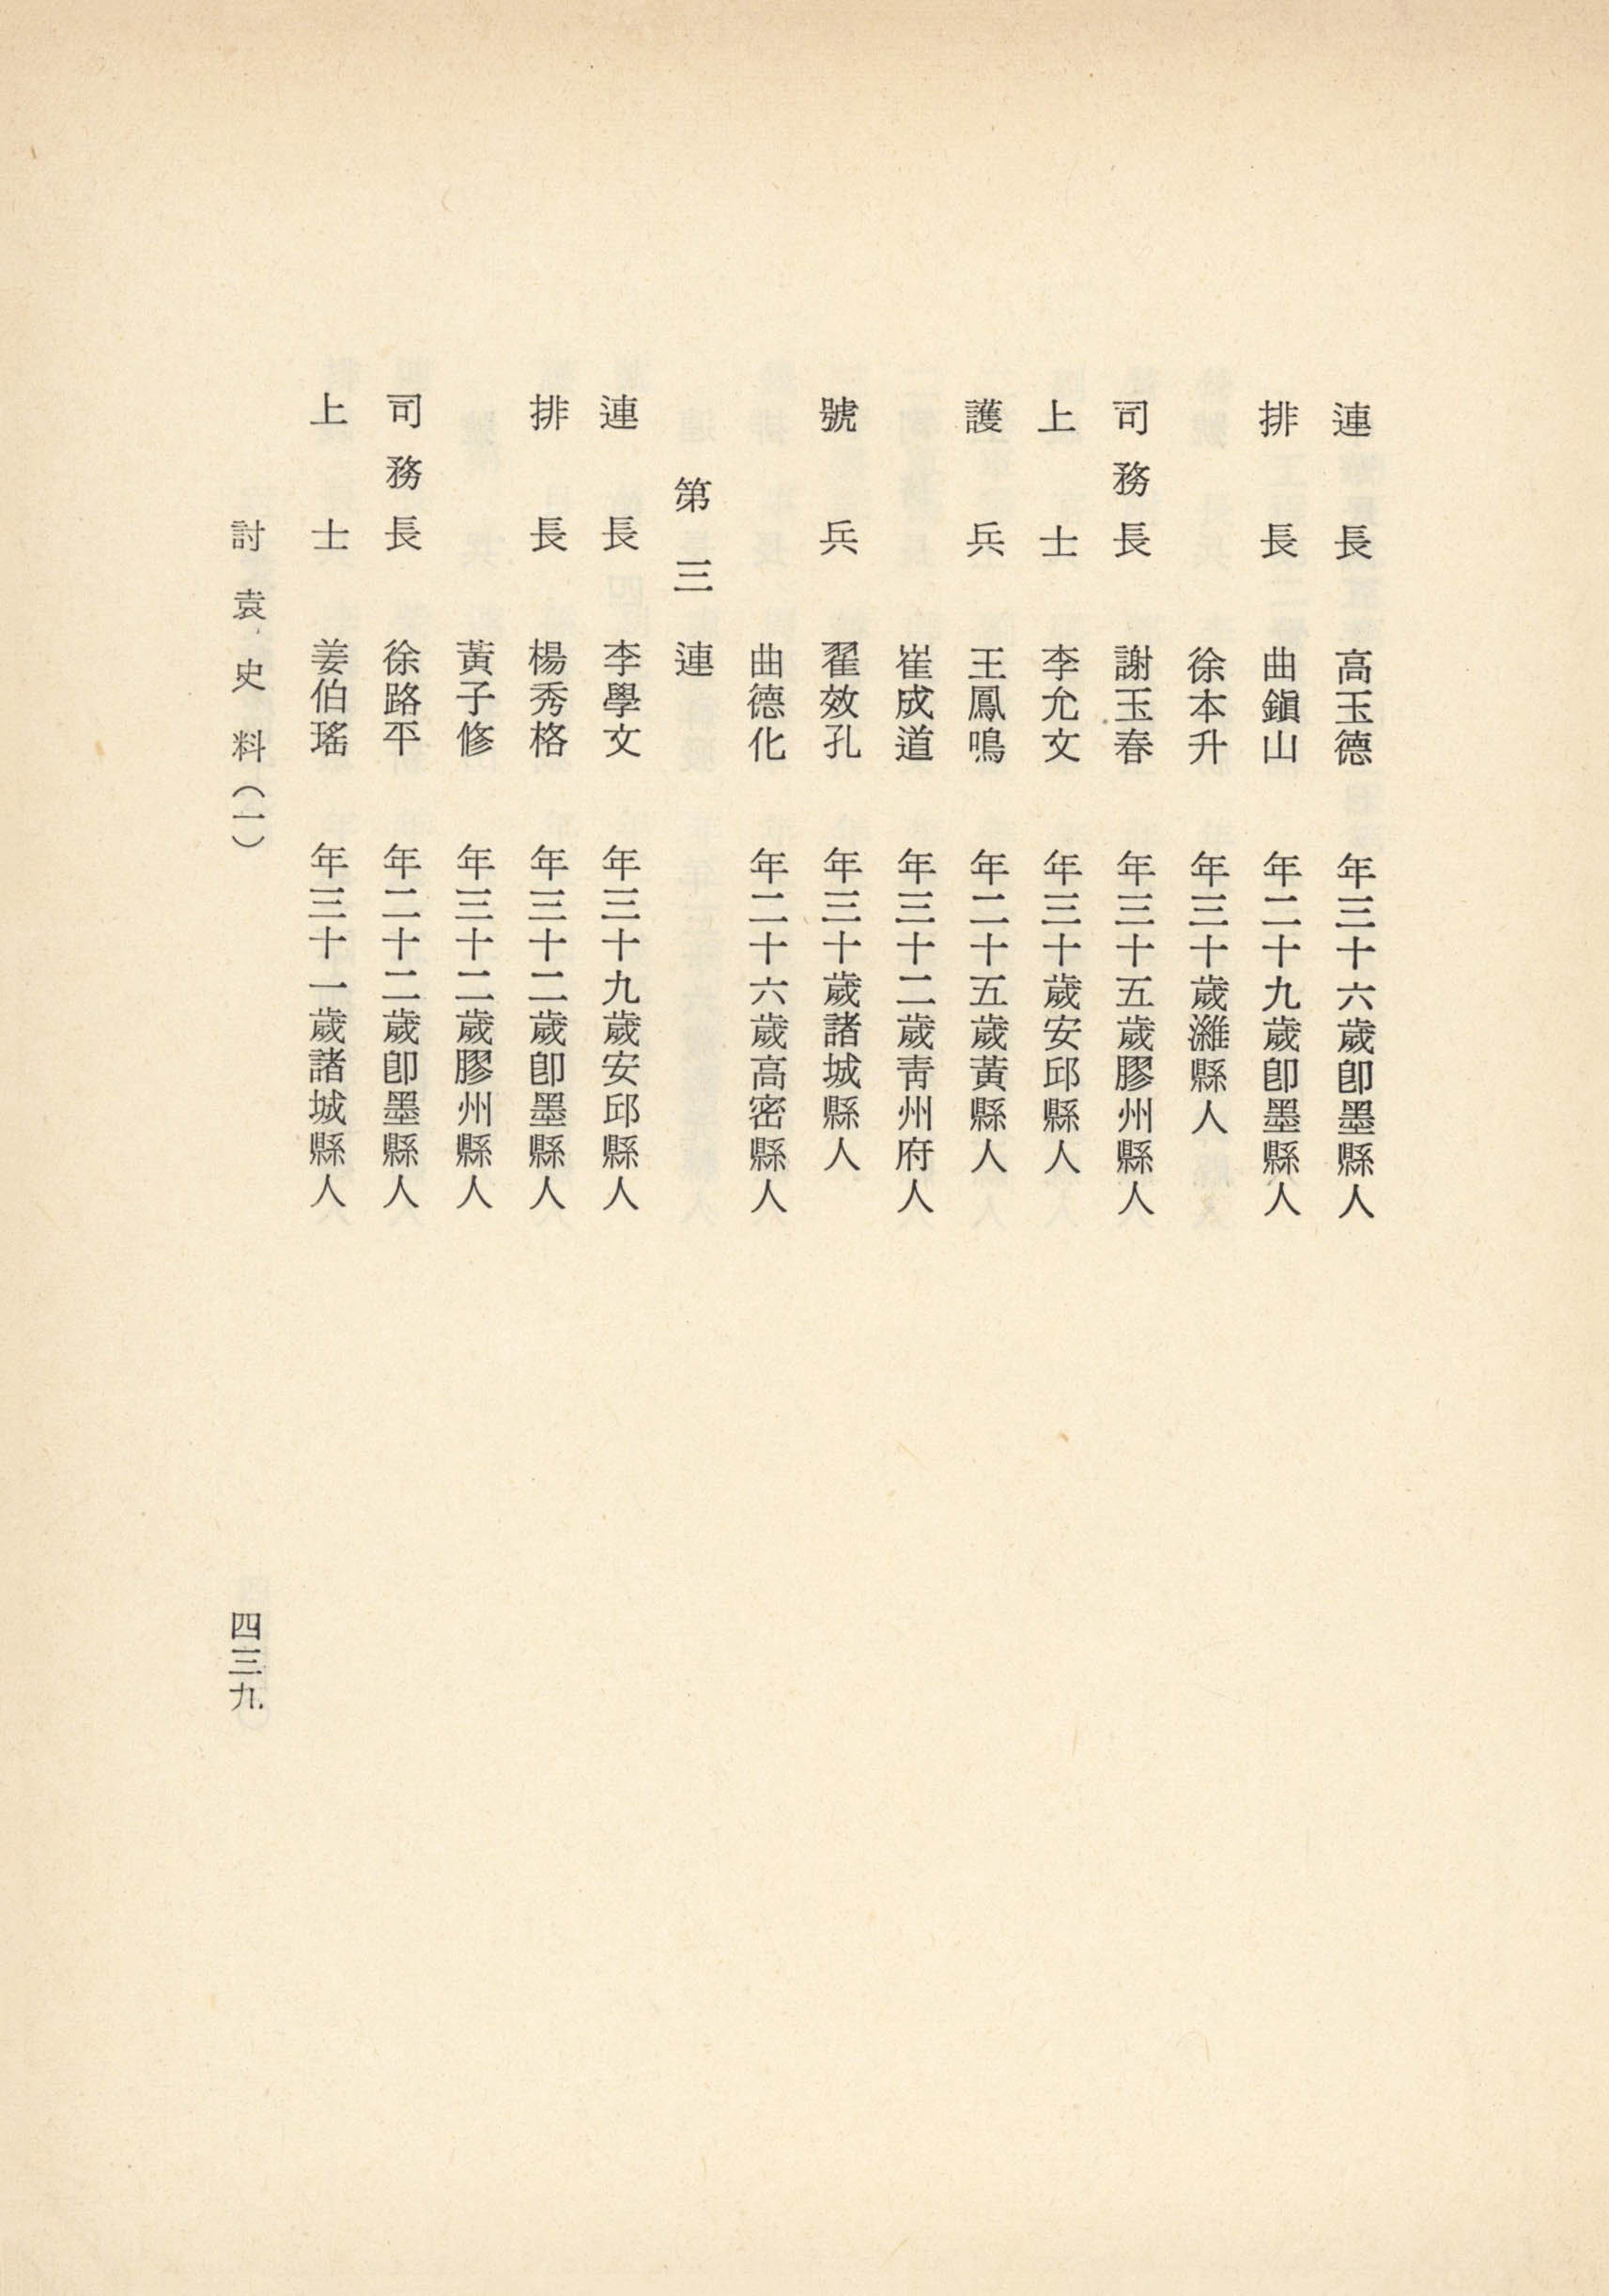 連長　高玉德　年三十六歲卽墨縣人
排長　曲鎭山　年二十九歲卽墨縣人
徐本升　年三十歲濰縣人
司務長　謝玉春　年三十五歲膠州縣人
上士　李允文　年三十歲安邱縣人
護兵　王鳳鳴　年二十五歲黃縣人
崔成道　年三十二歲靑州府人
號兵　翟效孔　年三十歲諸城縣人
曲德化　年二十六歲高密縣人
第三連
連長　李學文　年三十九歲安邱縣人
排長　楊秀格　年三十二歲卽墨縣人
黃子修　年三十二歲膠州縣人
司務長　徐路平　年二十二歲卽墨縣人
上士　姜伯瑤　年三十一歲諸城縣人
討袁史料（一）
四三九